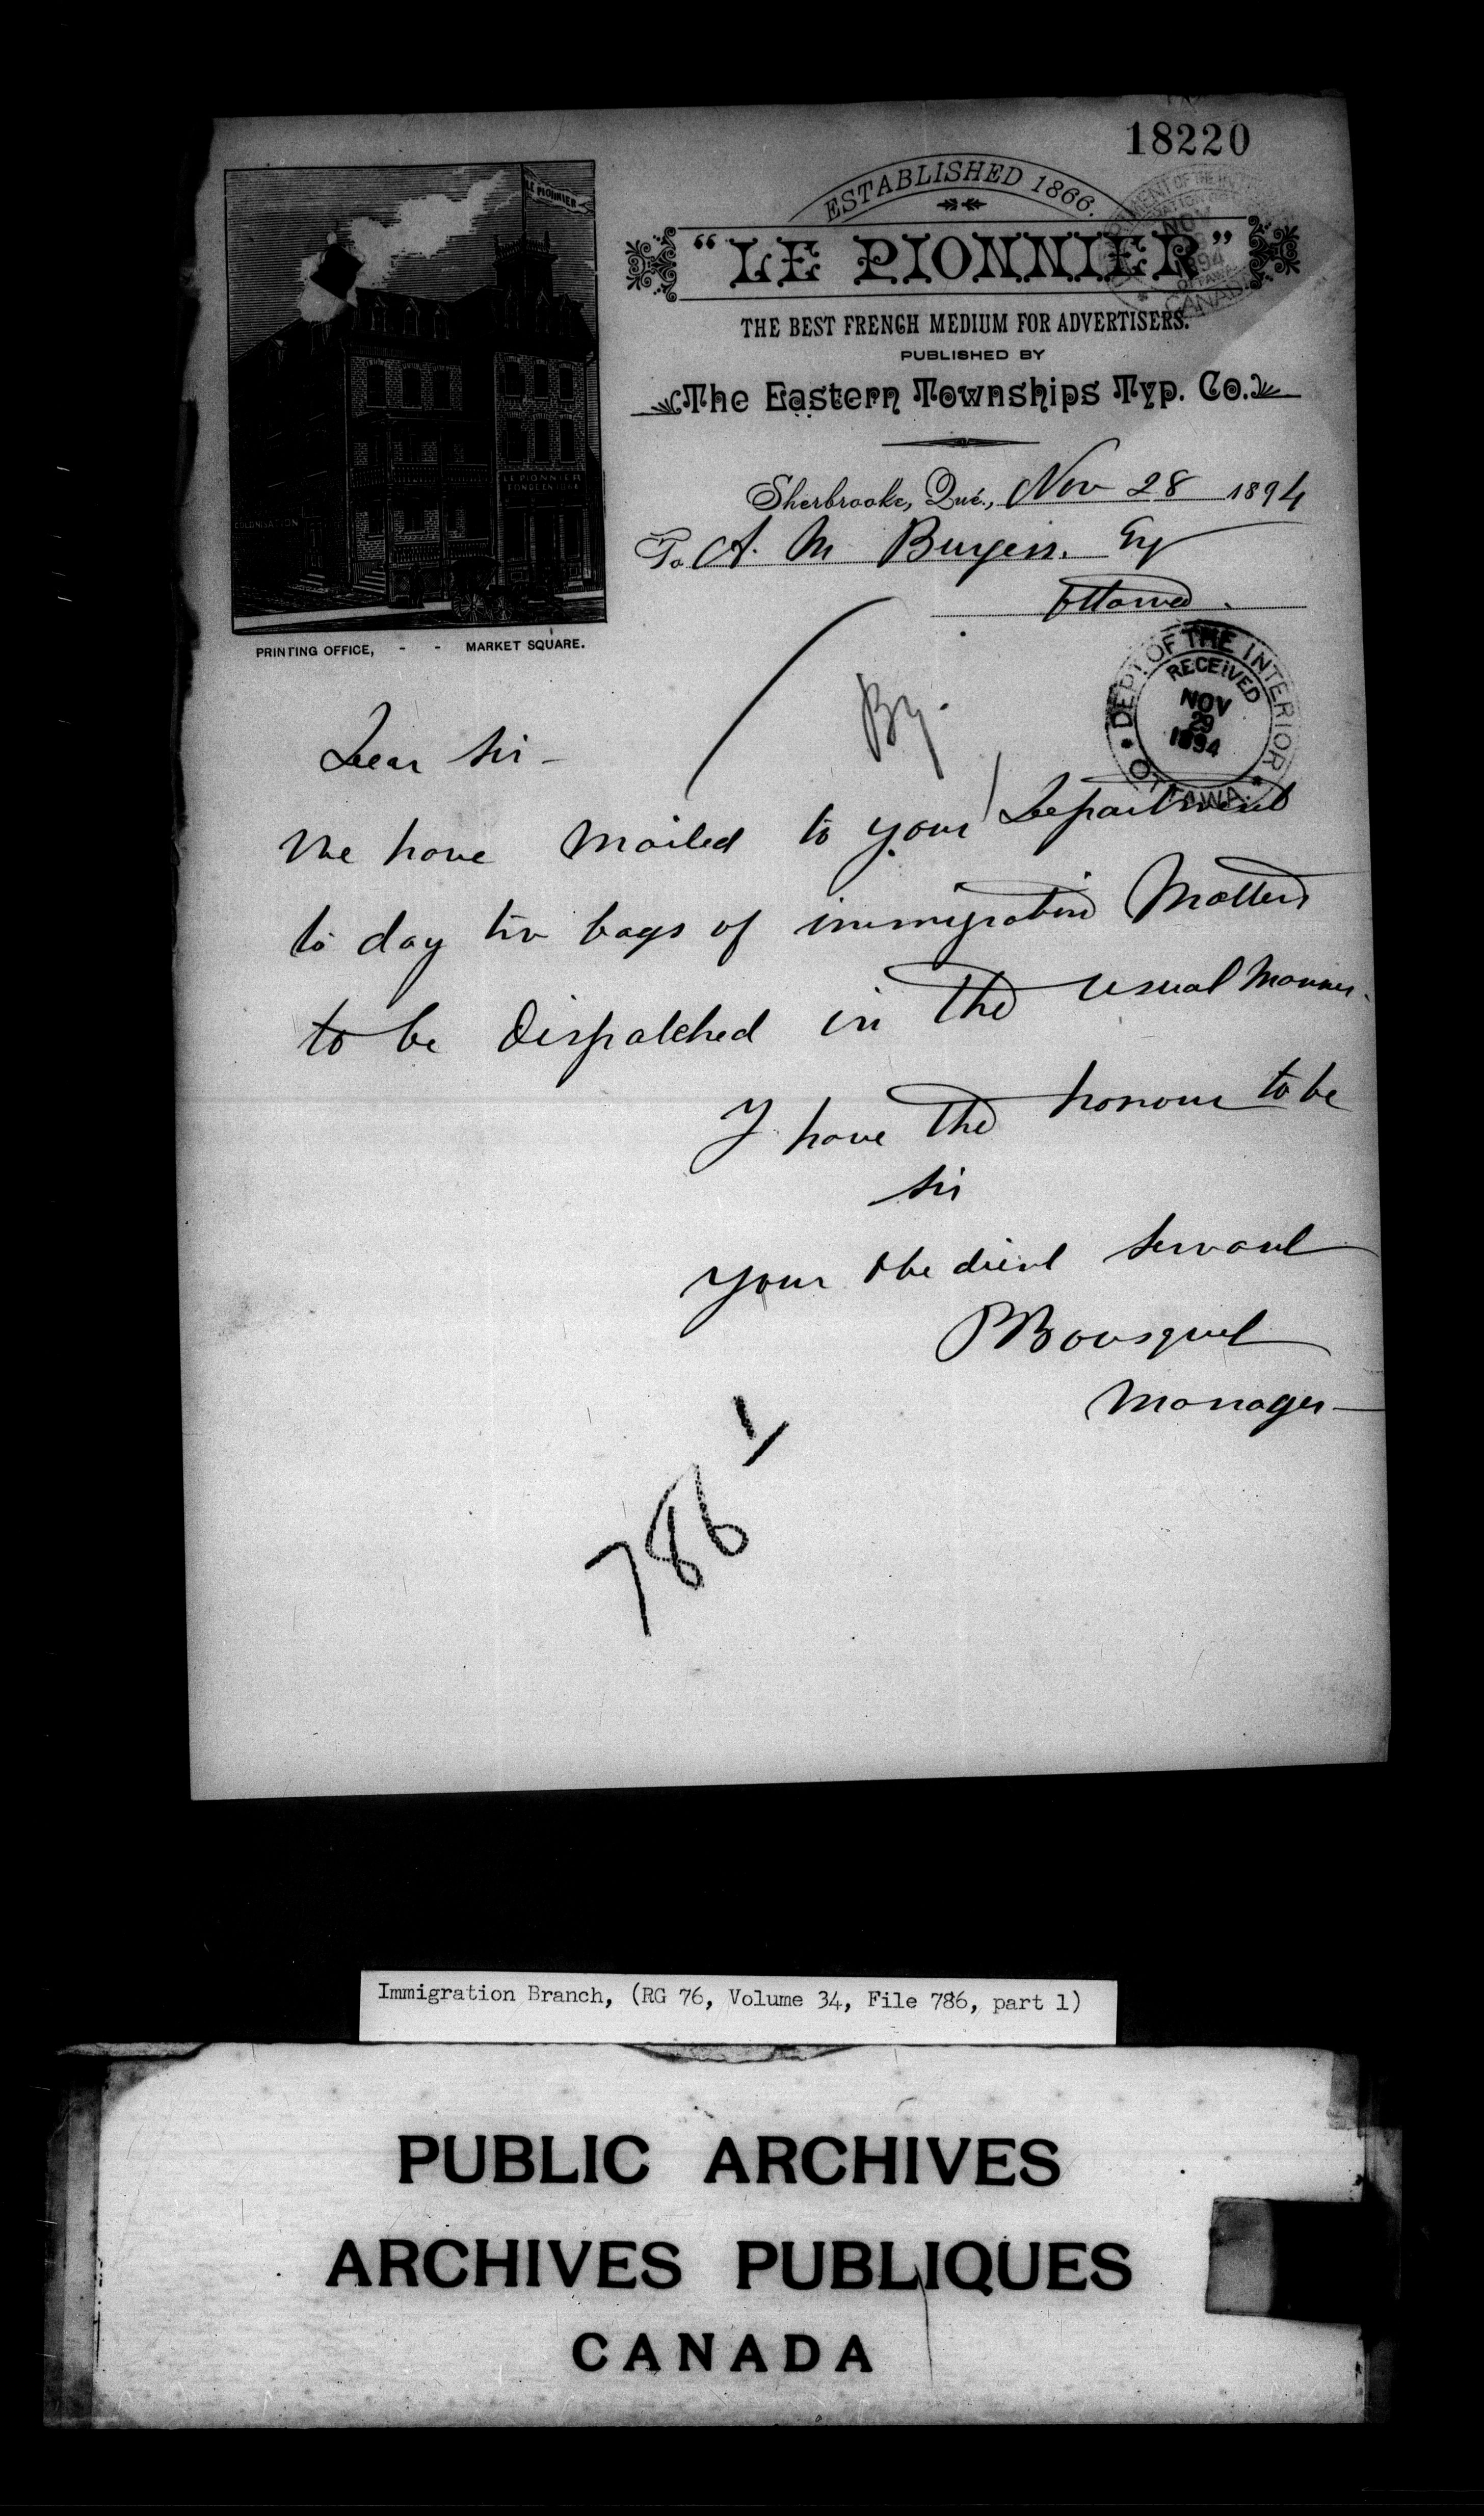 18220
ESTABLISHED 1866.
"LE PIONNIER"
THE BEST FRENCH MEDIUM FOR ADVERTISERS.
PUBLISHED BY
The Eastern Townships Typ. Co.
LE PIONNIER
LE PIONNIER
COLONISATION
PRINTING OFFICE, - - MARKET SQUARE.
Sherbrooke, Qué., Nov 28 1894
To A. M Burgess. Esq
Ottawa.
DEPT OF THE INTERIOR
RECEIVED
NOV
29
1894
OTTAWA
By.
Dear Sir -
We have mailed to your Department
to day two bags of immigration Matters
to be dispatched in the usual manner.
I have the honour to be
Sir
Your obedient Servant
PBousquet
Manager
786 1
Immigration Branch, (RG 76, Volume 34, File 786, part 1)
PUBLIC ARCHIVES
ARCHIVES PUBLIQUES
CANADA